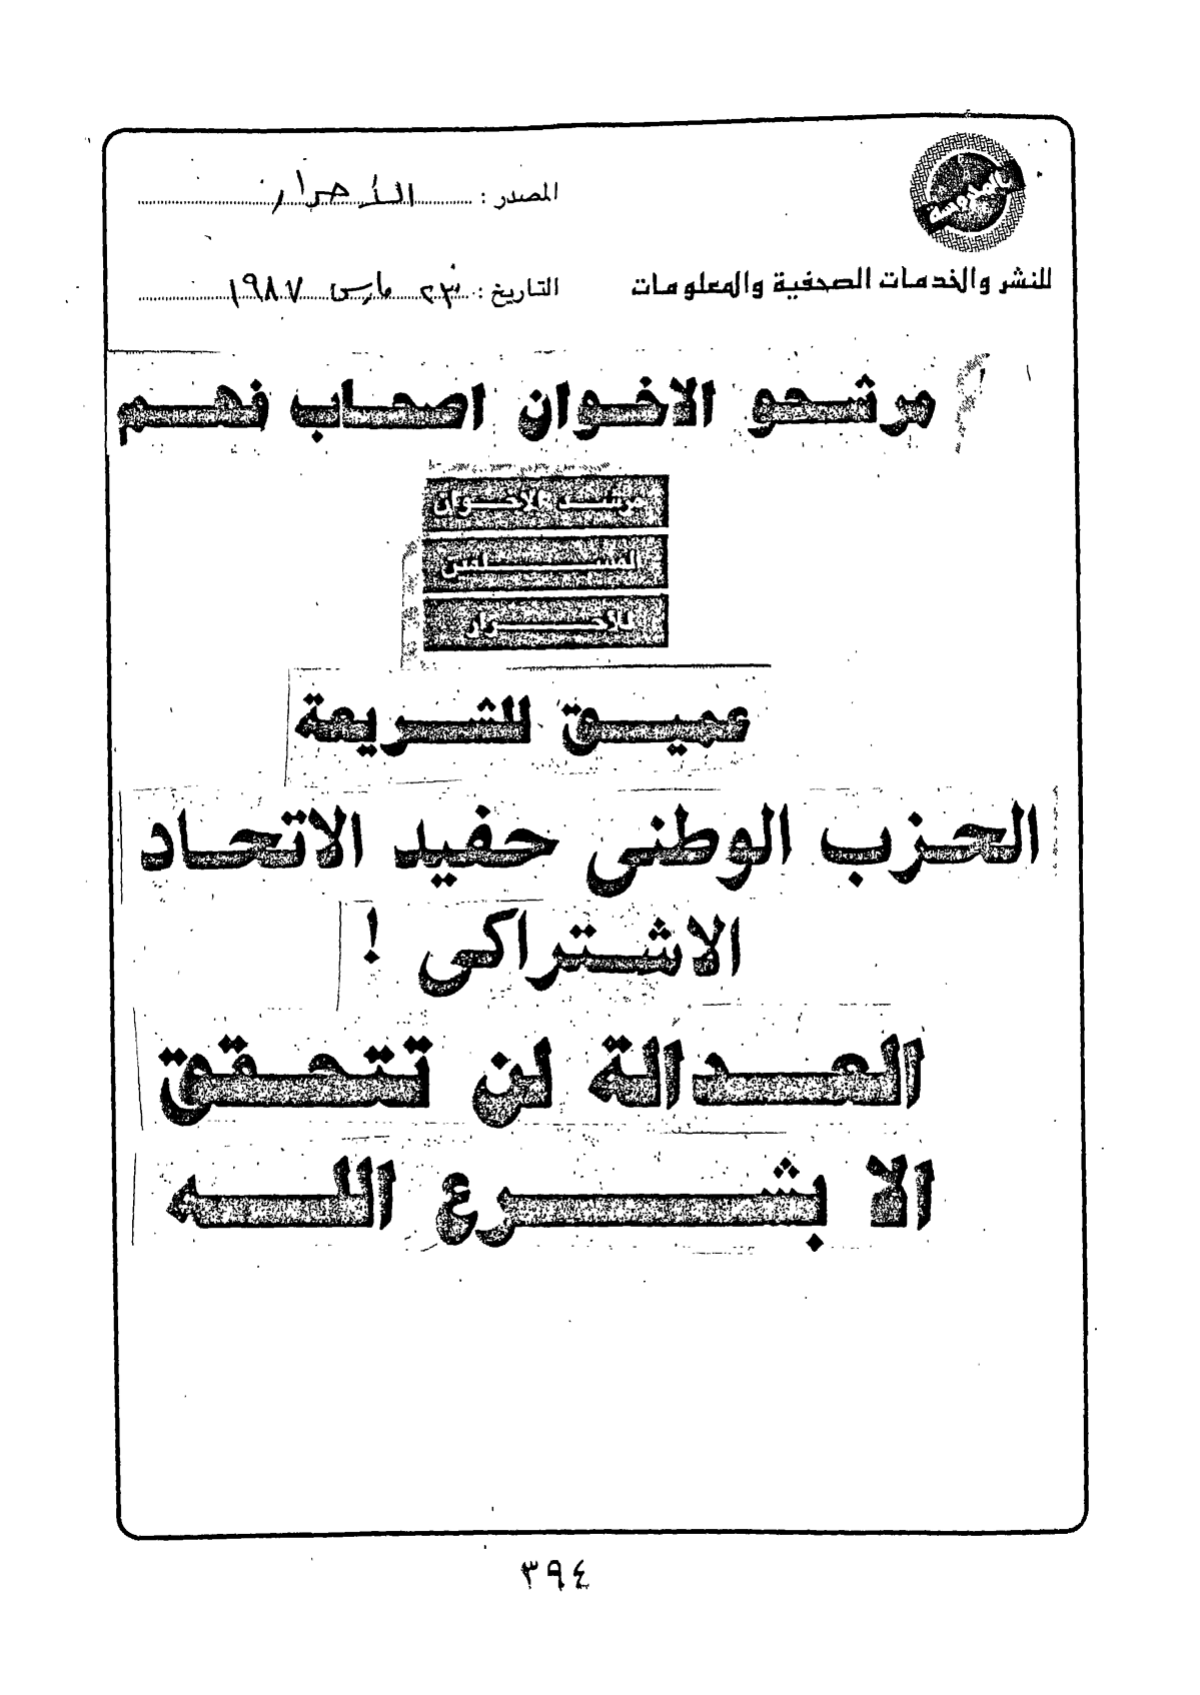 المحروسة
المصدر : الأحرار
للنشر والخدمات الصحفية والمعلومات
التاريخ : ٢٣ مارس ١٩٨٧
مرشحو الاخوان اصحاب فهم
مرشد الاخوان
المسلمين
للأحرار
عميق للشريعة
الحزب الوطنى حفيد الاتحاد
الاشتراكى !
العدالة لن تتحقق
الا بشرع الله
٣٩٤